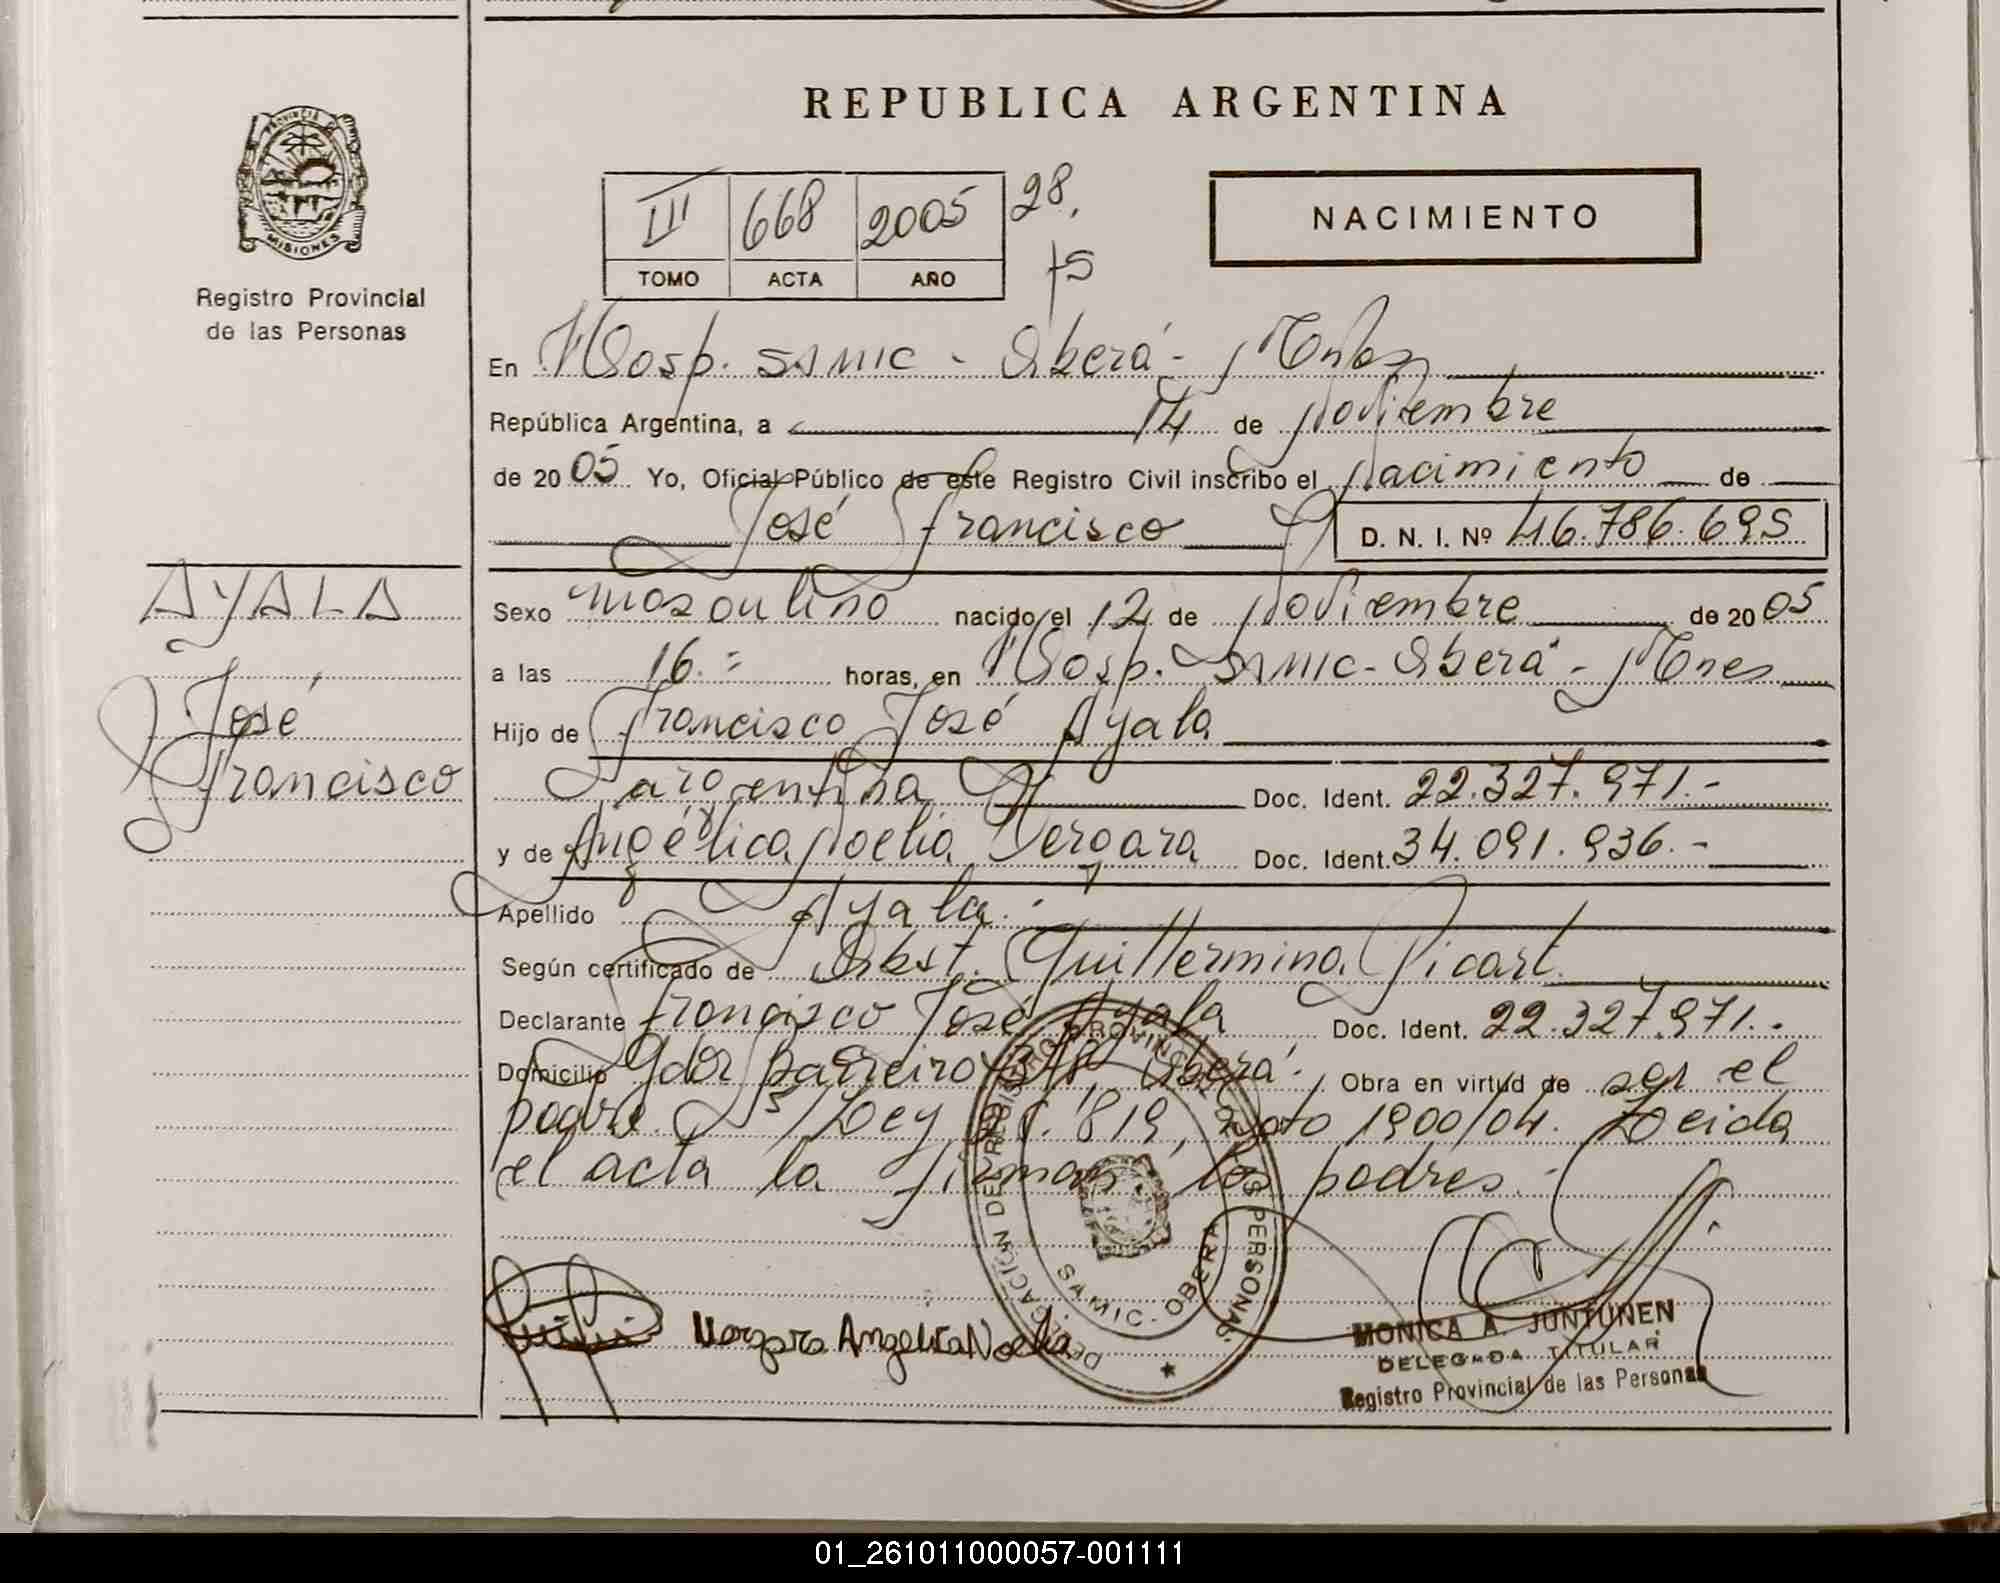 REPUBLICA ARGENTINA
PROVINCIA DE
MISIONES
Registro Provincial
de las Personas
III 668 2005 28.
TOMO ACTA AÑO
NACIMIENTO
En Hosp. SAMIC - Oberá - Mnes
República Argentina, a 14 de Noviembre
de 20 05 Yo, Oficial Público de este Registro Civil inscribo el Nacimiento de
José Francisco D. N. I. Nº 46.786.695
AYALA
José
Francisco
Sexo masculino nacido el 12 de Noviembre de 20 05
a las 16.= horas, en Hosp. SAMIC - Oberá - Mnes
Hijo de Francisco José Ayala
argentina Doc. Ident. 22.327.971.-
y de Angélica Noelia Vergara Doc. Ident. 34.091.936.-
Apellido Ayala.
Según certificado de Obst. Guillermina Picart
Declarante Francisco José Ayala Doc. Ident. 22.327.971.-
Domicilio Gdor Barreiro Oberá. Obra en virtud de ser el
padre. S/Ley 25.819, Dto 1900/04. Leida
el acta la firman los padres.
Vergara Angelica Noelia
DELEGACIÓN DEL REGISTRO PROVINCIAL DE LAS PERSONAS
SAMIC. OBERA
MONICA A. JUNTUNEN
DELEGADA TITULAR
Registro Provincial de las Personas
01_261011000057-001111